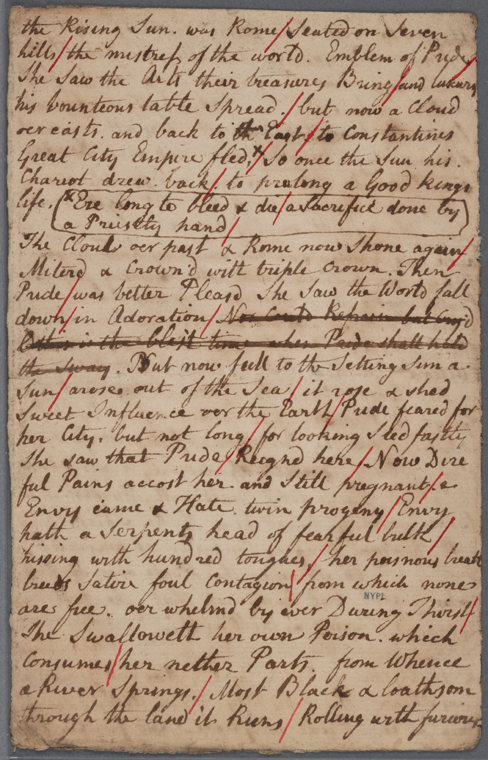 the Rising Sun. was Rome / Seated on Seven
hills / the mistress of the world. Emblem of Pride /
She saw the Arts their treasures Bring / and luxury
his bounteous table spread. / but now a Cloud
oer casts. and back to th East / to Constantines
Great City Empire fled, x / So once the Sun his.
Chariot drew. back / to prolong a Good kings
life. / x Ere long to bleed & die / a Sacrifice done by
a Priestly hand /
The Cloud oer past & Rome now Shone again /
Miterd & Crown'd with triple crown. Then
Pride / was better Pleasd She Saw the World fall
down / in Adoration /
the sway. But now full to the Setting Sun a
Sun / arose out of the Sea / it rose & shed
Sweet Influence oer the Earth / Pride feared for
her City, but not long / for looking Stedfastly
She saw that Pride / Reignd here / Now Dire
ful Pains accost her. and Still pregnant. &
Envy came & Hate. twin progeny / Envy
hath a Serpents head of fearful bulk /
hissing with hundred tongues, / her poisnous breath
breeds Satire foul Contagion / from which none
are free. oer whelmd by ever During Thirst /
She Swalloweth her own Poison. which
consumes / her nether Parts. from Whence
a River Springs. / Most Black & loathsom
through the land it Runs / Rolling with furious
NYPL